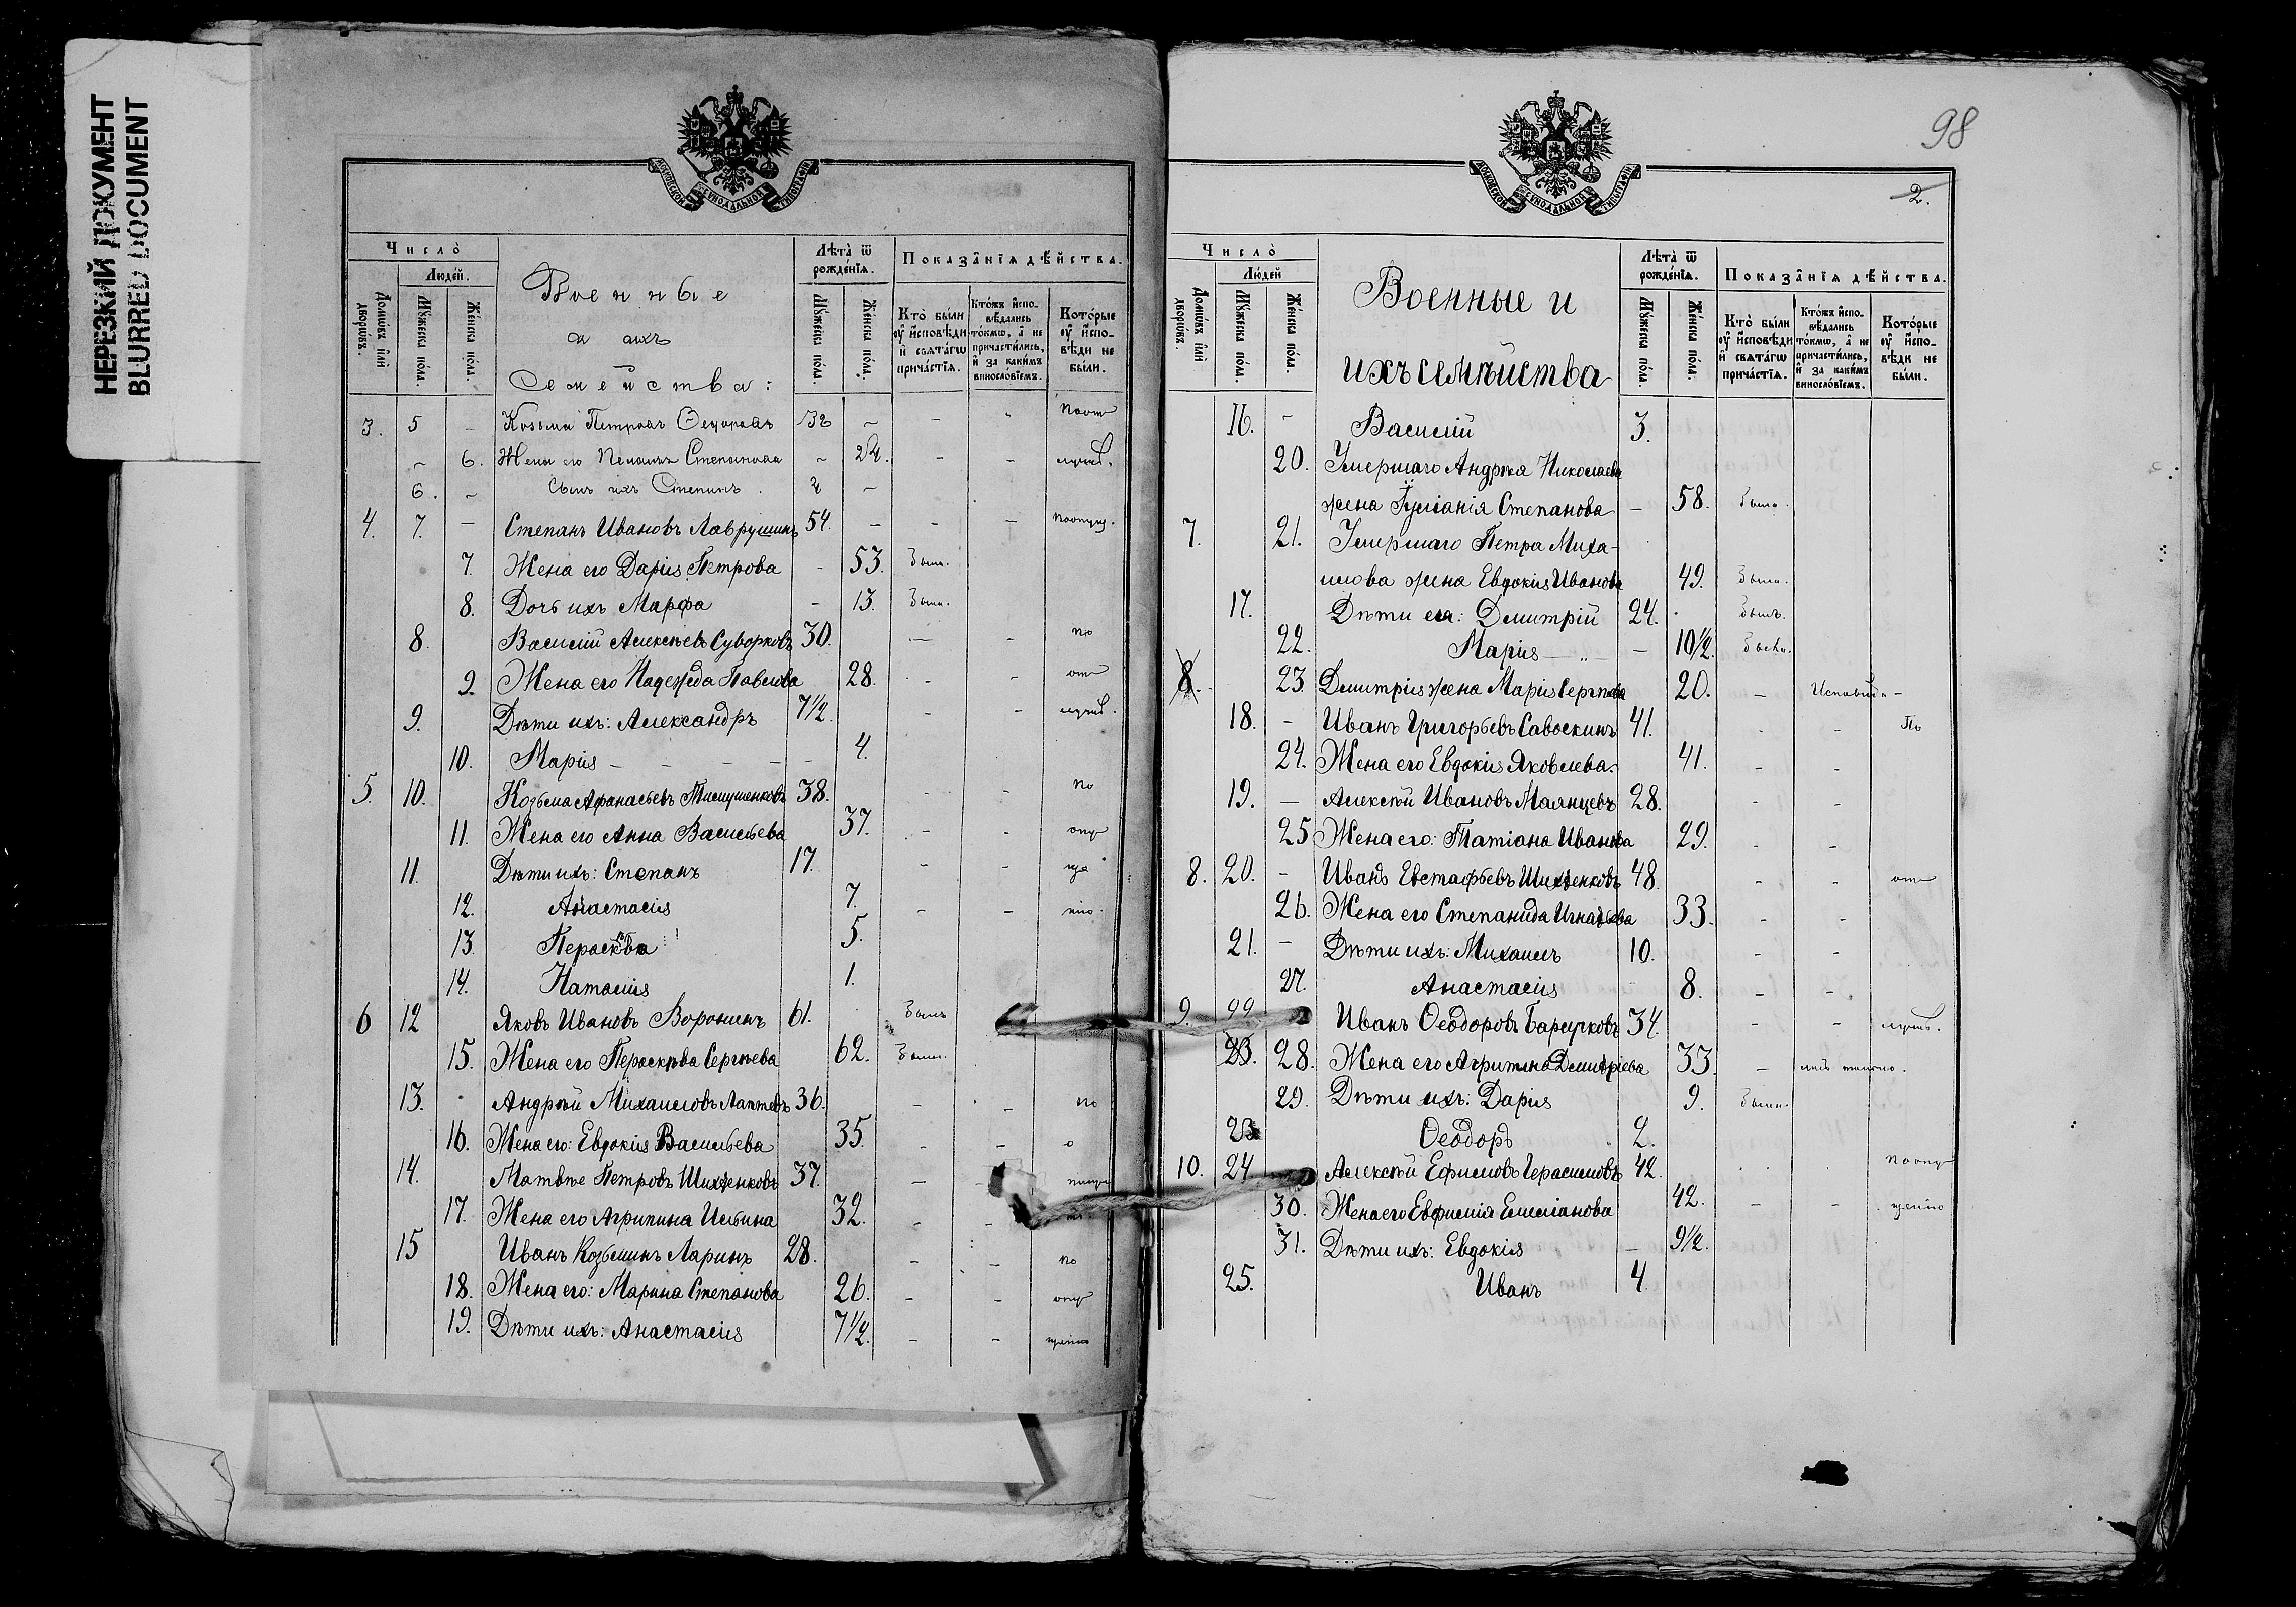 НЕРЕЗКИЙ ДОКУМЕНТ
BLURRED DOCUMENT
МОСКОВСКОЙ СѴНОДАЛЬНОЙ ТИПОГРАФІИ
Число
Людей.
Домѡвъ или дворѡвъ.
Мужеска пола.
Женска пола.
Военные
и ихъ
Семейства:
Лѣта ѿ рожденїя.
Мужеска пола.
Женска пола.
Показанїя дѣйства.
Кто были у исповѣди и святагѡ причастїя.
Ктожъ исповѣдались токмѡ, а не причастились, и за какимъ винословїемъ.
Которые у исповѣди не были.
3. 5 – Козьма Петровъ Ѳедоровъ 32 – – –
– 6. Жена его Степанова – 24. – –
6. – Сынъ ихъ Степанъ. 2 –
4. 7. – Степанъ Ивановъ Лаврушинъ 54. – – –
7. Жена его Дарія Петрова - 53. Была.
8. Дочь ихъ Марфа – 13. Была.
8. Василій Алексѣевъ Суворковъ 30. – - по
9. Жена его Надежда Павлова 28. - - от
9. Дѣти ихъ: Александръ 7½. - -
10. Марія – – – – 4.
5. 10. Козьма Афанасьевъ 38. - - по
11. Жена его Анна Васильева 37. - -
11. Дѣти ихъ: Степанъ 17. - -
12. Анастасія 7. - -
13. Пераскѣва 5.
14. Наталія 1.
6 12 Яковъ Ивановъ Воронинъ 61. Былъ
15. Жена его Пераскѣва Сергѣева 62. Была.
13. Андрей Михаиловъ Лаптевъ 36. – –
16. Жена его: Евдокія Васильева 35. - –
14. Матвѣе Петровъ Шихѣенковъ 37. – –
17. Жена его Агрипина Ильина 32. - –
15 Иванъ Козьминъ Ларинъ 28. – – по
18. Жена его: Марина Степанова 26. – –
19. Дѣти ихъ: Анастасія 7½. – –
98
2.
МОСКОВСКОЙ СѴНОДАЛЬНОЙ ТИПОГРАФІИ
Число
Людей
Домѡвъ или дворѡвъ.
Мужеска пола.
Женска пола.
Военные и
ихъ семѣйства
Лѣта ѿ рожденїя.
Мужеска пола.
Женска пола.
Показанїя дѣйства.
Кто были у исповѣди и святагѡ причастїя.
Ктожъ исповѣдались токмѡ, а не причастились, и за какимъ винословїемъ.
Которые у исповѣди не были.
16. – Василій 3.
20. Умершаго Андрея Николаева
жена Степанова – 58. Была.
7. 21. Умершаго Петра Миха-
илова жена Евдокія Иванова 49. Была.
17. Дѣти ея: Димитрій 24. Былъ.
22. Марія – 10½. Была.
8. 23. Димитрія жена Марія Сергѣева 20. –
18. – Иванъ Григорьевъ Савоскинъ 41. - – По
24. Жена его Евдокія Яковлева. 41. – –
19. – Алексѣй Ивановъ Маянцевъ 28. - -
25 Жена его: Татіана Иванова 29. - –
8. 20. – Иванъ Евстафьевъ Шихѣенковъ 48. – – от
26. Жена его Степанида Игнатьева 33. – –
21. – Дѣти ихъ: Михаилъ 10. – –
27. Анастасія - 8. – –
9. 22 Иванъ Ѳеодоровъ Барсуковъ 34. - –
23. 28. Жена его Агрипина Димитріева 33. –
29. Дѣти ихъ: Дарія 9. Была
23 Ѳеодоръ 2.
10. 24 Алексѣй Ефимовъ Герасимовъ 42.
30. Жена его Евфимія Емеліанова 42. – –
31. Дѣти ихъ: Евдокія – 9½.
25. Иванъ 4.